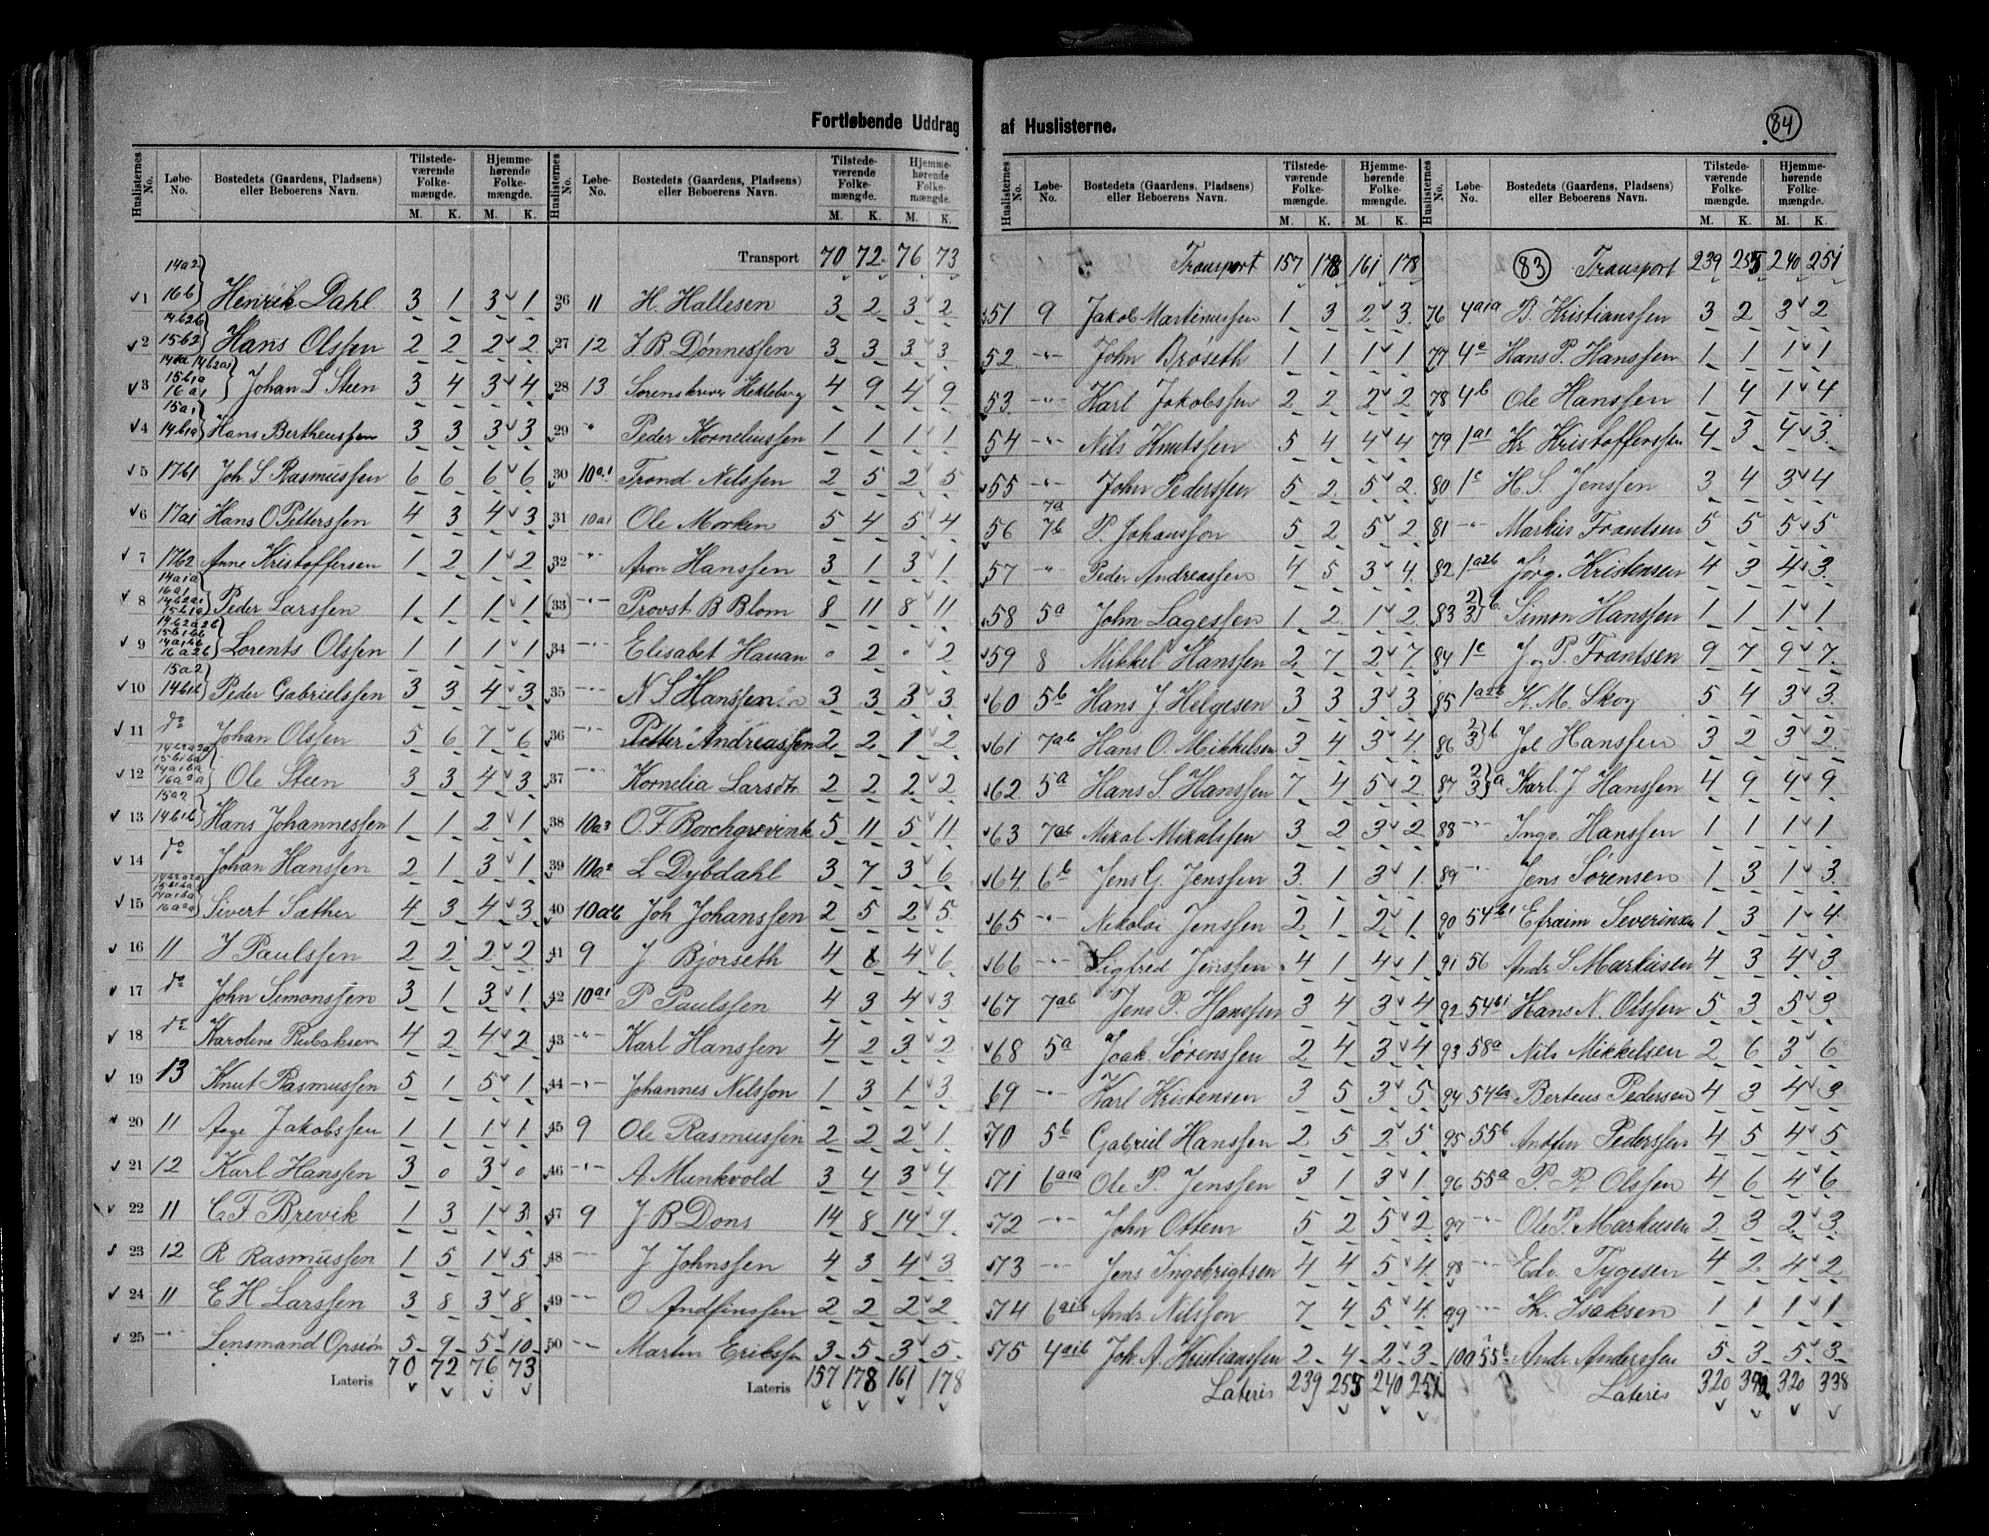 Fortløbende Uddrag af Huslisterne.
84
Huslisternes No. Løbe-No. Bostedets (Gaardens, Pladsens) eller Beboerens Navn. Tilstedeværende Folkemængde. M. K. Hjemmehørende Folkemængde. M. K.
14a2
1 16b Henrik Dahl 3 1 3 1
14b2b
2 15b2 Hans Olssen 2 2 2 2
3 15b1a 16a1 Johan L Steen 3 4 3 4
15a1
4 14b1a Hans Bertheussen 3 3 3 3
5 17b1 Joh. S Rasmussen 6 6 6 6
6 17a1 Hans O Petterssen 4 3 4 3
7 17b2 Anne Kristoffersen 1 2 1 2
14a1a 16a1 14b2a1 15b1a
8 Peder Larssen 1 1 1 1
14b2a2b 15b1bb 14a1bb 16a2b
9 Lorents Olssen 1 1 1 1
15a2
10 14b1b Peder Gabrielssen 3 3 4 3
11 do Johan Olssen 5 6 7 6
14b2a2a 15b1ba 14a1ba 16a2a
12 Ole Steen 3 3 4 3
15a2
13 14b1b Hans Johannessen 1 1 2 1
14 do Johan Hanssen 2 1 3 1
14b2a2a 15b1ba 14a1ba 16a2a
15 Sivert Sæther 4 3 4 3
16 11 J Paulssen 2 2 2 2
17 do John Simonssen 3 1 3 1
18 do Karoline Rubaksen 4 2 4 2
19 13 Knut Rasmussen 5 1 5 1
20 11 Aage Jakobssen 1 1 1 1
21 12 Karl Hanssen 3 0 3 0
22 11 C. F Brevik 1 3 1 3
23 12 R Rasmussen 1 5 1 5
24 11 E H Larssen 3 8 3 8
25 -"- Lensmand Opsiøn 5 9 5 10
Lateris 70 72 76 73
Huslisternes No. Løbe-No. Bostedets (Gaardens, Pladsens) eller Beboerens Navn. Tilstedeværende Folkemængde. M. K. Hjemmehørende Folkemængde. M. K.
Transport 70 72 76 73
26 11 H. Hallesen 3 2 3 2
27 12 J B Dønnessen 3 3 3 3
28 13 Sorenskriver Hekleberg 4 9 4 9
29 " Peder Korneliussen 1 1 1 1
30 10a1 Trond Nilssen 2 5 2 5
31 10a1 Ole Morken 5 4 5 4
32 -"- Aron Hanssen 3 1 3 1
(33) -"- Provst B Blom 8 11 8 11
34 -"- Elisabet Hauan 0 2 0 2
35 -"- N S Hanssen 3 3 3 3
36 -"- Petter Andreassen 2 2 1 2
37 -"- Kornelia Larsdtr 2 2 2 2
38 10a3 O. F Borchgrevink 5 11 5 11
39 10a2 L Dybdahl 3 7 3 6
40 10a6 Joh Johanssen 2 5 2 5
41 9 J Bjørseth 4 6 4 6
42 10a1 P Paulssen 4 3 4 3
43 -"- Karl Hanssen 4 2 3 2
44 -"- Johannes Nilsson 1 3 1 3
45 9 Ole Rasmussen 2 2 2 1
46 -"- A Munkvold 3 4 3 4
47 9 J B Dons 14 8 14 9
48 -"- J Johnssen 4 3 4 3
49 -"- O Andfinssen 2 2 2 2
50 -"- Martin Erikssen 3 5 3 5
Lateris 157 178 161 178
Huslisternes No. Løbe-No. Bostedets (Gaardens, Pladsens) eller Beboerens Navn. Tilstedeværende Folkemængde. M. K. Hjemmehørende Folkemængde. M. K.
Transport 157 178 161 178
51 9 Jakob Martinussen 1 3 2 3
52 -"- John Brøseth 1 1 1 1
53 -"- Karl Jakobssen 2 2 2 2
54 -"- Nils Knutssen 5 4 4 4
55 -"- John Pederssen 5 2 5 2
7a
56 7b P. Johansson 5 2 5 2
57 " Peder Andreassen 4 5 3 4
58 5a John Lagessen 1 2 1 2
59 8 Mikkel Hanssen 2 7 2 7
60 5b Hans J Helgesen 3 3 3 3
61 7ab Hans O. Mikkelsen 3 4 3 4
62 5a Hans S Hanssen 7 4 5 2
63 7ab Mikal Mikalssen 3 2 3 2
64 6b Jens G. Jenssen 3 1 3 1
65 -"- Nikolai Jenssen 2 1 2 1
66 -"- Sigfred Jenssen 4 1 4 1
67 7ab Jens P. Hanssen 3 4 3 4
68 5a Joak. Sørenssen 2 4 3 4
69 -"- Karl Kristensen 3 5 3 5
70 5b Gabriel Hanssen 2 5 2 5
71 6a1a Ole P. Jenssen 3 1 3 1
72 -"- John Ottem 5 2 5 2
73 -"- Jens Ingebrigtsen 4 4 5 4
74 6a1b Andr. Nilsson 7 4 5 4
75 4a1b Joh. A. Kristianssen 2 4 2 3
Lateris 239 255 240 251
Huslisternes No. Løbe-No. Bostedets (Gaardens, Pladsens) eller Beboerens Navn. Tilstedeværende Folkemængde. M. K. Hjemmehørende Folkemængde. M. K.
83 Transport 239 255 240 251
76 4a1a B. Kristianssen 3 2 3 2
77 4c Hans P. Hanssen 1 1 1 1
78 4b Ole Hanssen 1 4 1 4
79 1a1 Kr Kristofferssen 4 3 4 3
80 1c H. S. Jenssen 3 4 3 4
81 -"- Markus Frantsen 5 5 5 5
82 1a2b Jørg. Kristensen 4 3 4 3
83 2 3 b Simon Hanssen 1 1 1 1
84 1c J. og P. Frantsen 9 7 9 7
85 1a2b K. M. Skog 5 4 3 3
86 2 3 b Joh Hanssen 3 2 3 2
87 2 3 a Karl. J Hanssen 4 9 4 9
88 -"- Ingv. Hanssen 1 1 1 1
89 -"- Jens Sørensen 1 3 1 3
90 54b1 Efraim Severinsen 1 3 1 4
91 56 Andr. S Markusen 4 3 4 3
92 54b1 Hans N. Olssen 5 3 5 3
93 58a Nils Mikkelsen 2 6 3 6
94 54ba Berteus Pedersen 4 3 4 3
95 55b Andfin Pederssen 4 5 4 5
96 55a P. R. Olssen 4 6 4 6
97 -"- Ole P. Markusen 2 3 2 3
98 -"- Edv. Tygesen 4 2 4 2
99 -"- Kr. Isaksen 1 1 1 1
100 55b Andr Anderssen 5 3 5 3
Lateris 320 320 338